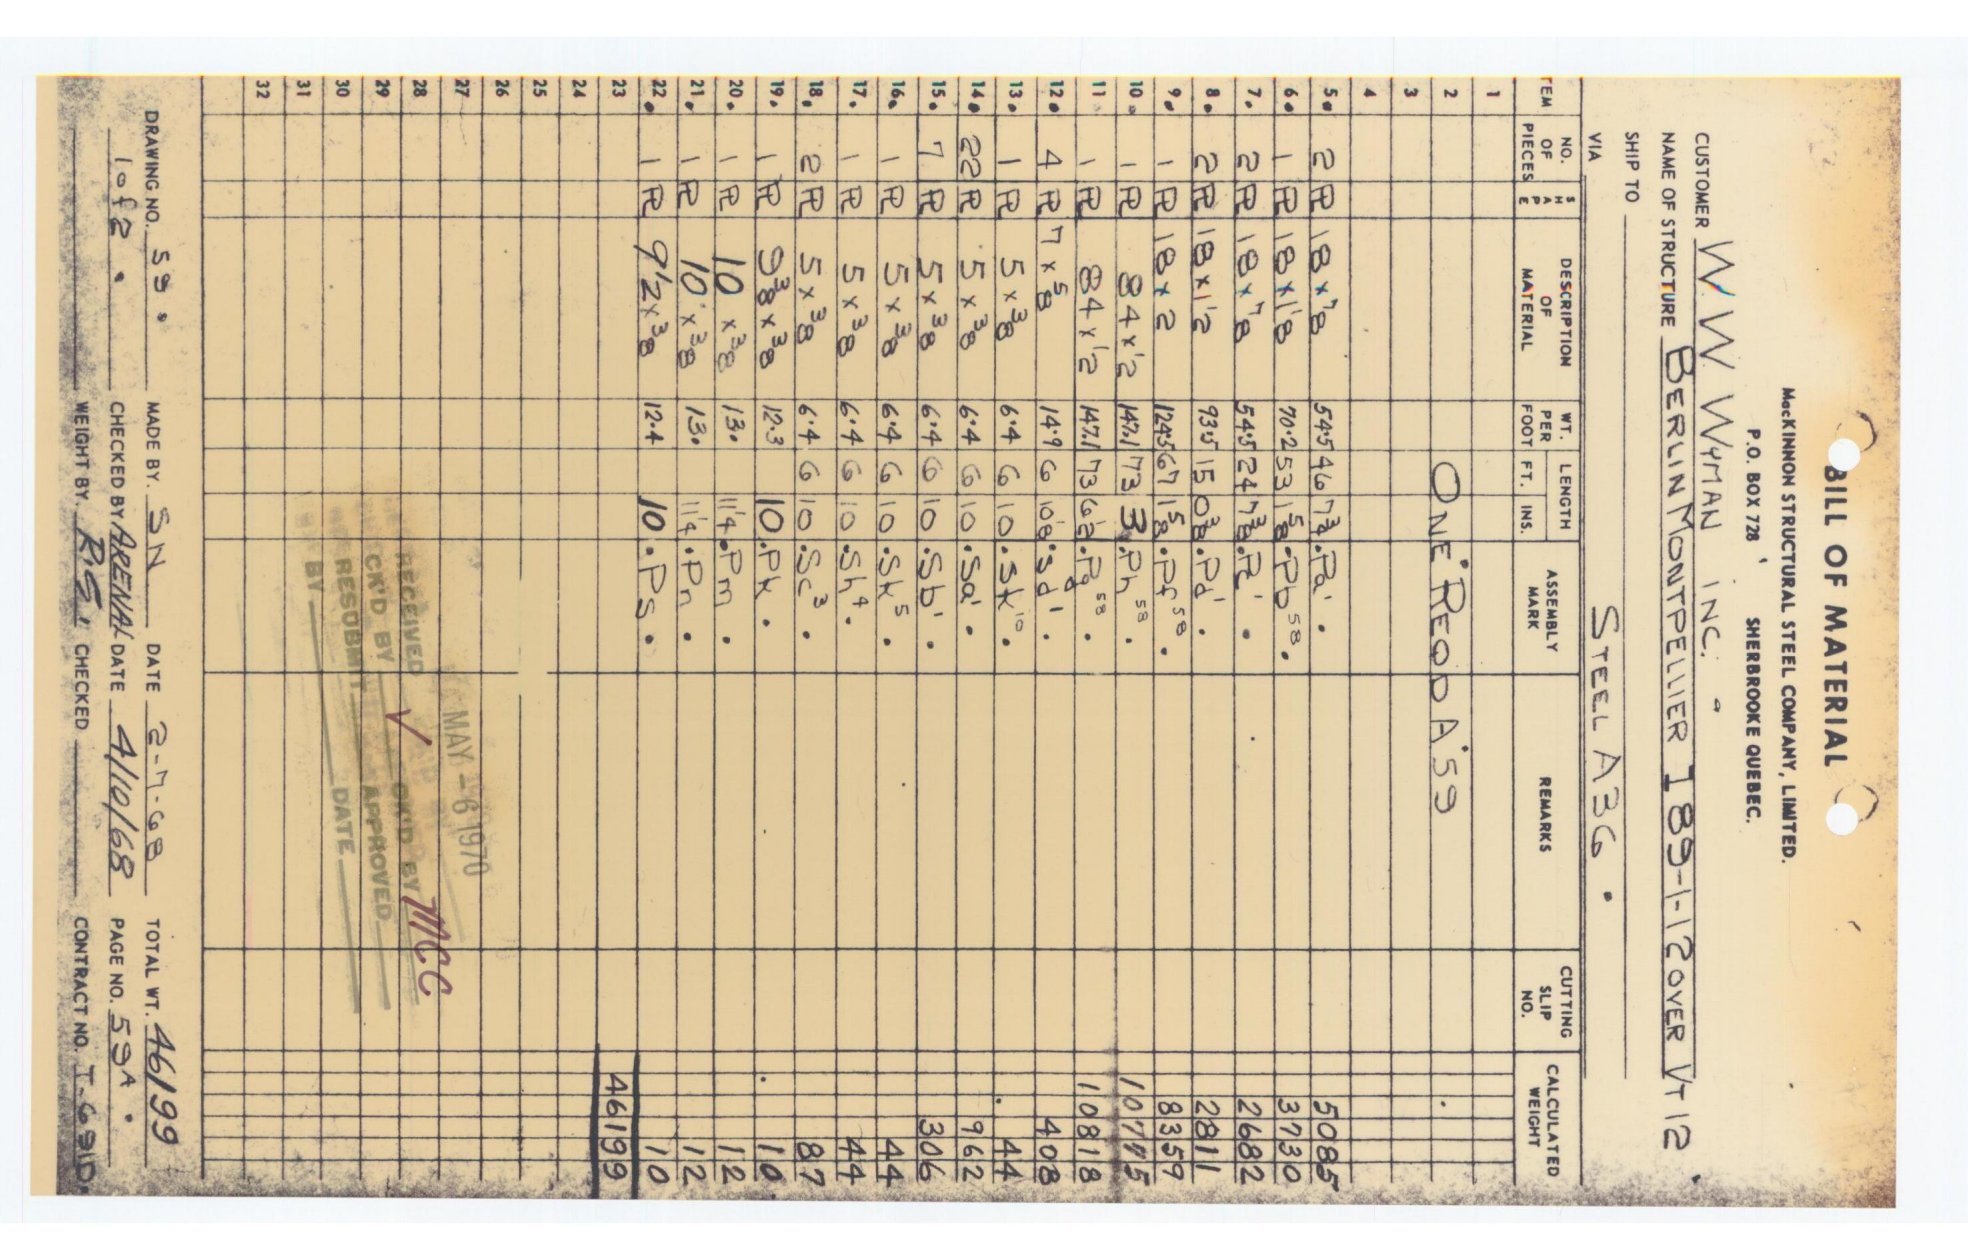 BILL OF MATERIAL
MacKINNON STRUCTURAL STEEL COMPANY, LIMITED.
P.O. BOX 728 SHERBROOKE QUEBEC.
CUSTOMER W. W. WYMAN INC.
NAME OF STRUCTURE BERLIN MONTPELLIER I 89-1-12 OVER VT 12
SHIP TO
VIA STEEL A36
ITEM NO. OF PIECES SHAPE DESCRIPTION OF MATERIAL WT. PER FOOT LENGTH FT. INS. ASSEMBLY MARK REMARKS CUTTING SLIP NO. CALCULATED WEIGHT
1
2 ONE REQD A 59
3
4
5. 2 PL 18 x 7/8 54.5 46 7 3/4 Pa' 5085
6. 1 PL 18 x 1 1/8 70.2 53 1 5/8 Pb 58 3730
7. 2 PL 18 x 7/8 54.5 24 7 3/8 Pc' 2682
8. 2 PL 18 x 1 1/2 93.5 15 0 3/8 Pd' 2811
9. 1 PL 18 x 2 124.5 67 1 5/8 Pf 58 8359
10. 1 PL 84 x 1/2 147.1 73 3 Ph 58 10775
11 1 PL 84 x 1/2 147.1 73 6 1/2 Pg 58 10818
12. 4 PL 7 x 5/8 14.9 6 10 1/8 Sd' 408
13. 1 PL 5 x 3/8 6.4 6 10 Sk 10 44
14. 22 PL 5 x 3/8 6.4 6 10 Sa' 962
15. 7 PL 5 x 3/8 6.4 6 10 Sb' 306
16. 1 PL 5 x 3/8 6.4 6 10 Sk 5 44
17. 1 PL 5 x 3/8 6.4 6 10 Sh 4 44
18. 2 PL 5 x 3/8 6.4 6 10 Sc 3 87
19. 1 PL 9 3/8 x 3/8 12.3 10 Pk 10
20. 1 PL 10 x 3/8 13. 11 1/4 Pm 12
21. 1 PL 10 x 3/8 13. 11 1/4 Pn 12
22. 1 PL 9 1/2 x 3/8 12.4 10 Ps 10
23 46199
24
25
26
27
28
29
30
31
32
MAY -6 1970
RECEIVED
CK'D BY OK'D BY MCC
RESUBMIT APPROVED
BY DATE
DRAWING NO. 59 MADE BY. SN DATE 2-7-68 TOTAL WT. 46199
1 of 2 CHECKED BY ARENAL DATE 4/10/68 PAGE NO. 59A
WEIGHT BY. CHECKED CONTRACT NO. T-691D